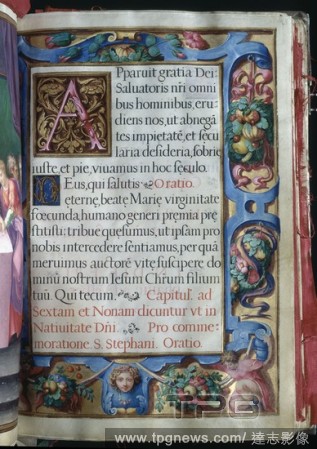 Apparuit gratia Dei
Saluatoris nr̃i omni
bus hominibus, eru=
diens nos, ut abnegã
tes impietatẽ, et secu
laria desideria, sobrie
iuste, et pie, viuamus in hoc sęculo.
Deus, qui salutis Oratio.
ęternę, beatę Marię virginitate
fœcunda, humano generi pręmia prę
stitisti: tribue quęsumus, ut ipsam pro
nobis intercedere sentiamus, per quã
meruimus auctorẽ vitę suscipere do
minũ nostrum Iesum Chr̃um filium
tuũ. Qui tecum. Capitul. ad
Sextam et Nonam dicuntur vt in
Natiuitate Dñi. Pro comme=
moratione S. Stephani. Oratio
TPG
www.tpgnews.com/ 達志影像